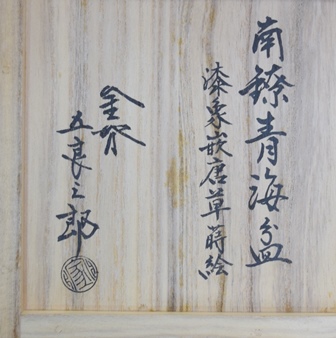 南鐐青海盆
漆象嵌唐草蒔絵
金谷
五良三郎